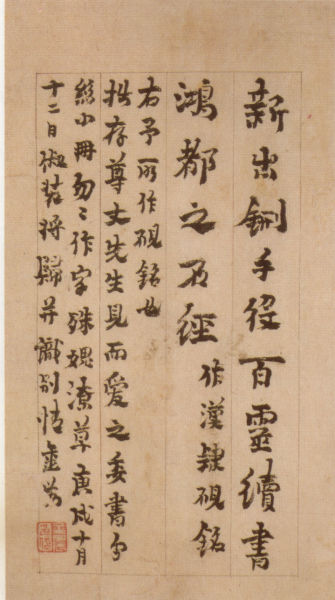 新出釧手役百靈續書
鴻都之石經 作漢隸硯銘
右予所作硯銘也
拙存尊丈先生見而愛之委書烏
絲小冊匆〻作字殊媿潦草庚戌十月
十二日俶裝將歸并識別情金農